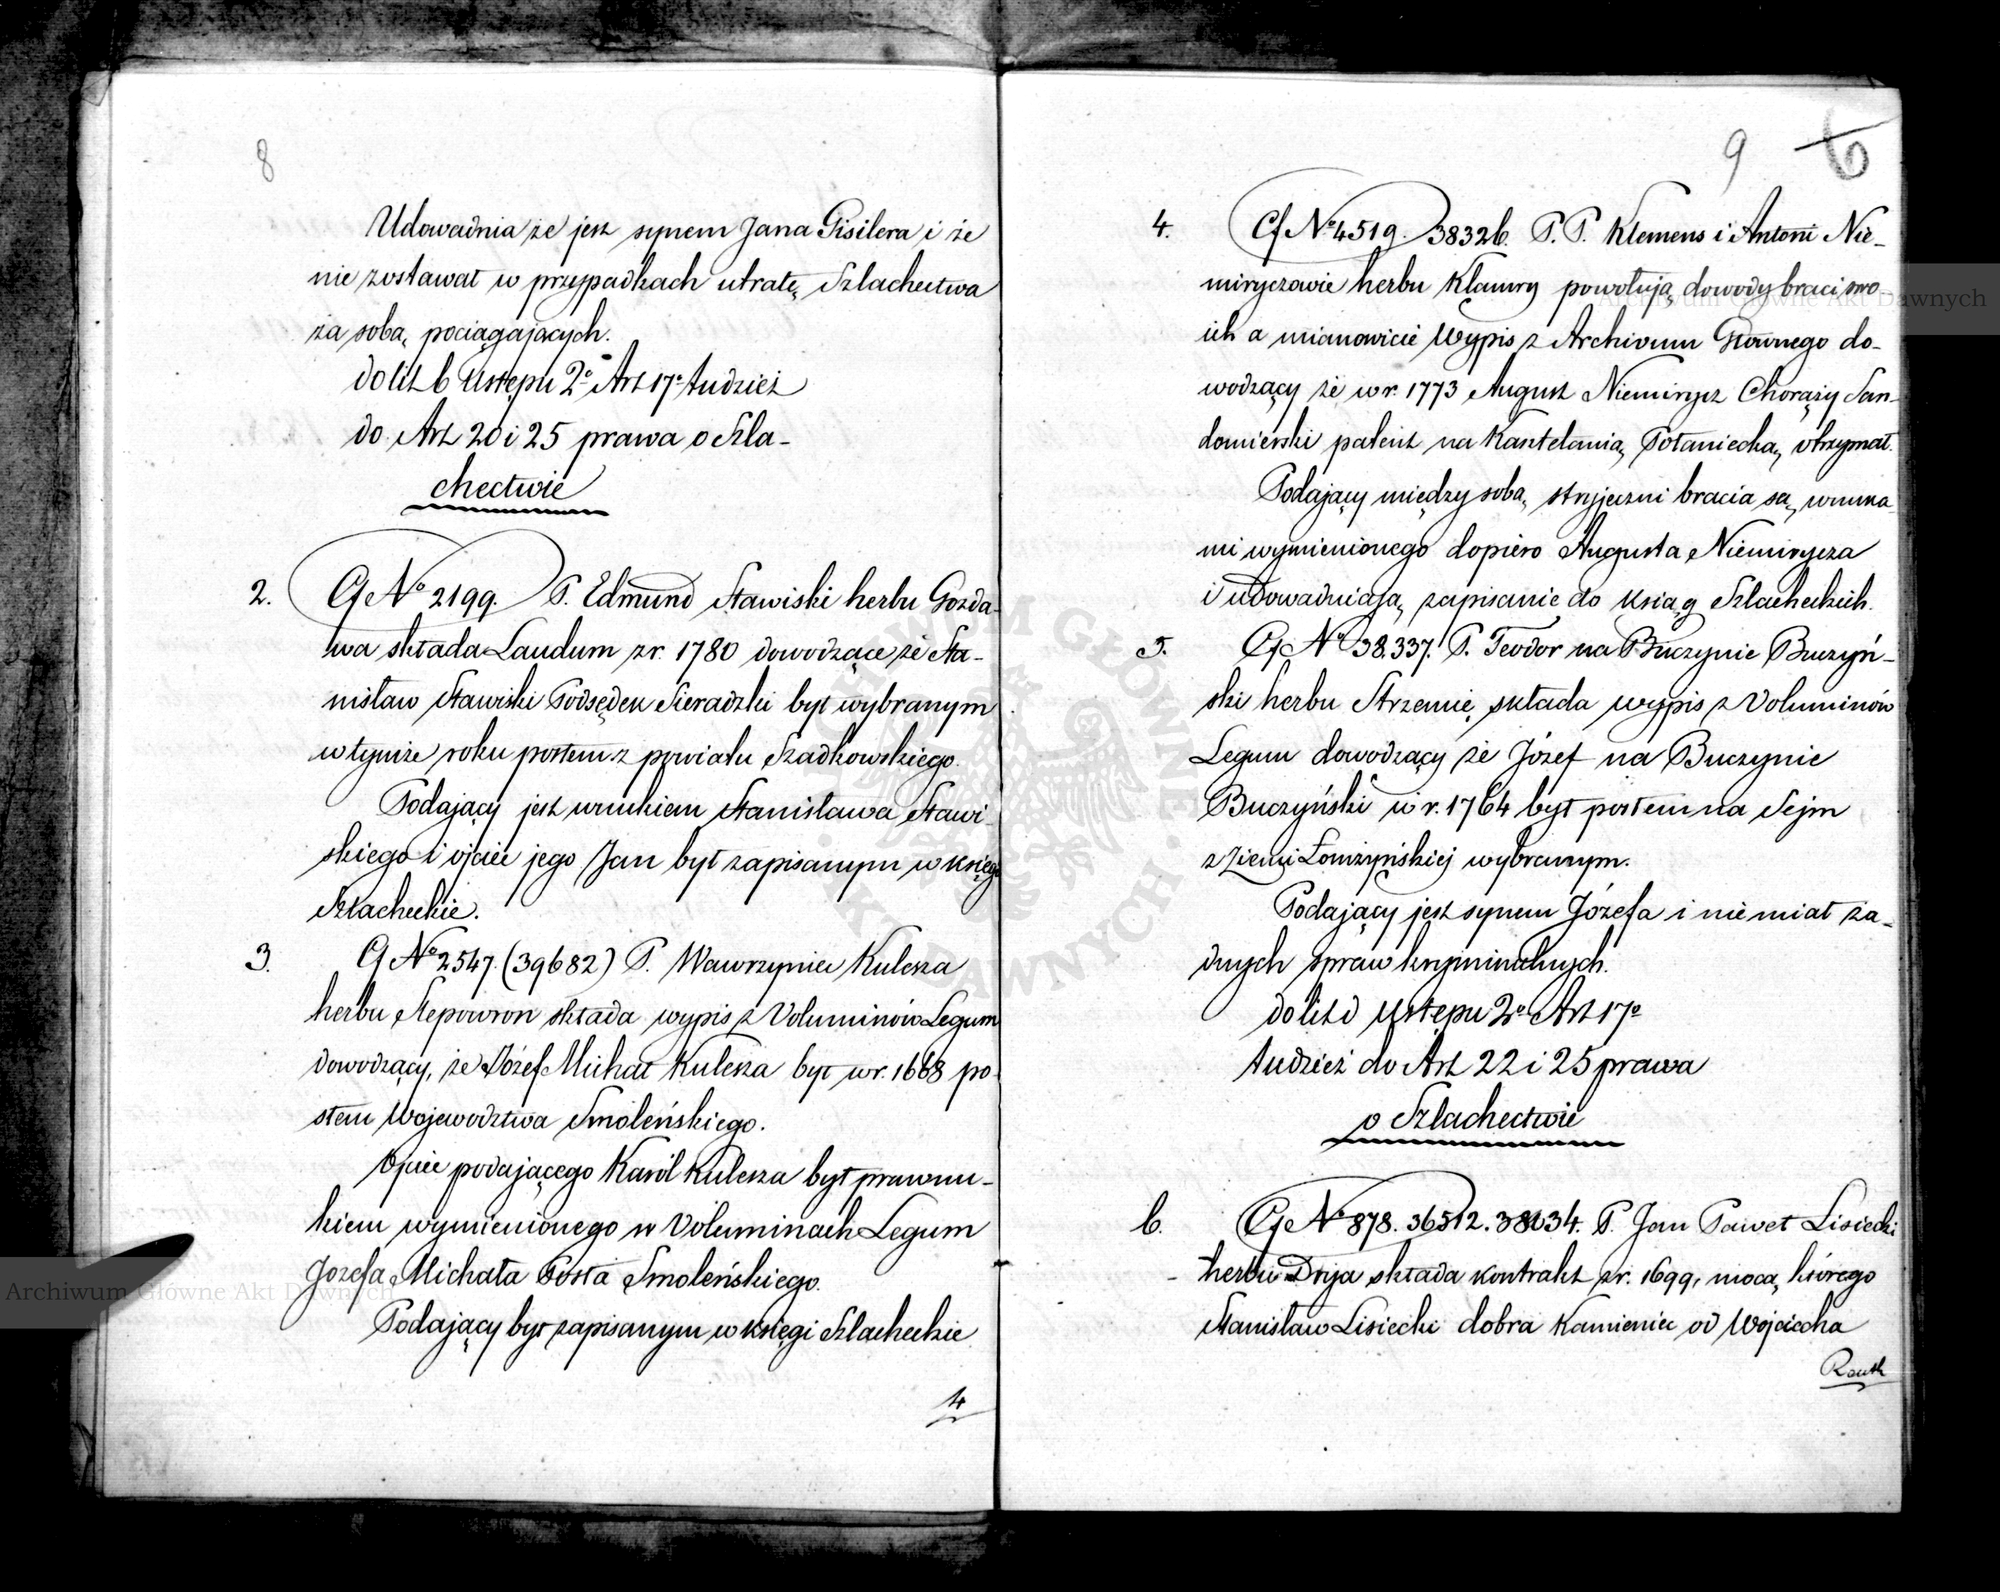 8
Udowadnia że jest synem Jana Gisilera i że
nie zostawał w przypadkach utratę Szlachectwa
za sobą pociągających.
do lit b Ustępu 2º Art 17º tudzież
do Art 20 i 25 prawa o Szla-
chectwie
2. Cf Nº 2199. P. Edmund Stawiski herbu Gozda-
wa składa Laudum z r. 1780 dowodzące że Sta-
nisław Stawiski Podsędek Sieradzki był wybranym
w tymże roku posłem z powiatu Szadkowskiego.
Podający jest wnukiem Stanisława Stawi-
skiego i ojciec jego Jan był zapisanym w księgi
Szlacheckie.
3. Cf Nº 2547. (39682) P. Wawrzyniec Kulesza
herbu Slepowron składa wypis z Voluminów Legum
dowodzący, że Józef Michał Kulesza był w r. 1668 po-
słem Województwa Smoleńskiego.
Ojciec podającego Karól Kulesza był prawnu-
kiem wymienionego w Voluminach Legum
Jozefa Michała Posła Smoleńskiego.
Podający był zapisanym w księgi Szlacheckie
4
9 6
4. Cf Nº 4519. 38326. P. P. Klemens i Antoni Nie-
miryczowie herbu Klamry powołują dowody braci swo-
ich a mianowicie Wypis z Archivum Głownego do-
wodzący że w r. 1773 August Niemirycz Chorąży San-
domierski patent na Kasztelanią Połaniecką otrzymał.
Podający między sobą stryjeczni bracia są wnuka-
mi wymienionego dopiero Augusta Niemirycza
i udowadniają zapisanie do Ksiąg Szlacheckich.
5. Cf Nº 38.337. P. Teodor na Buczynie Buczyń-
ski herbu Strzemię składa wypis z Voluminów
Legum dowodzący że Józef na Buczynie
Buczyński w r. 1764 był posłem na Sejm
z Ziemi Łomżyńskiej wybranym.
Podający jest synem Józefa i nie miał ża-
dnych spraw kryminalnych.
do lit d Ustępu 2º Art 17º
tudzież do Art 22 i 25 prawa
o Szlachectwie
6. Cf Nº 878. 36512. 38634. P. Jan Paweł Lisiecki
herbu Drya składa kontrakt z r. 1699, mocą którego
Stanisław Lisiecki dobra Kamieniec od Wojciecha
Archiwum Główne Akt Dawnych
Archiwum Główne Akt Dawnych
ARCHIWUM GŁÓWNE AKT DAWNYCH